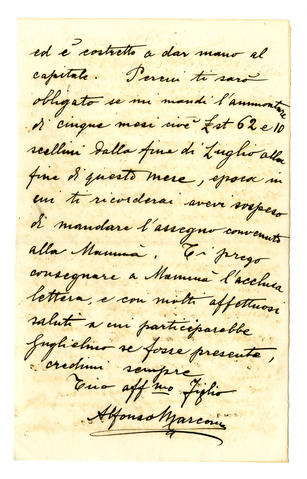 ed è costretto a dar mano al
capitale. Percui ti sarò
obligato se mi mandi l'ammontare
di cinque mesi cioè Lst 62 e 10
scellini dalla fine di Luglio alla
fine di questo mese, epoca in
cui ti ricorderai avevi sospeso
di mandare l'assegno convenuto
alla Mammà. Ti prego
consegnare a Mammà l'acclusa
lettera, e con molti affettuosi
saluti a cui participarebbe
Guglielmo se fosse presente,
credimi sempre
Tuo aff mo Figlio
Alfonso Marconi